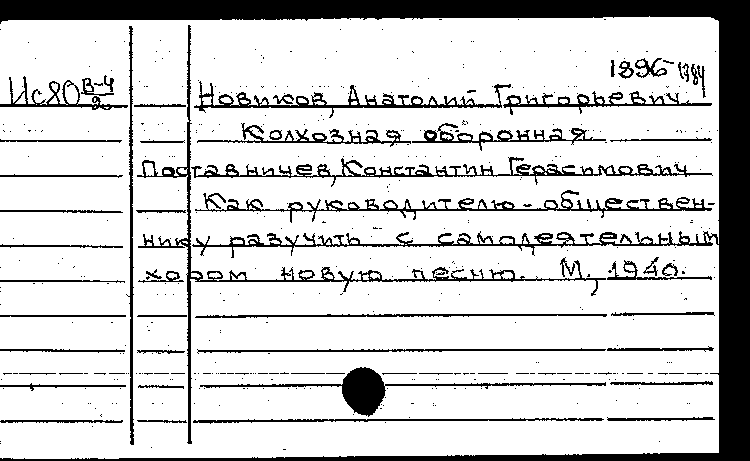 1896-1984
Ис80 В-4/2 Новиков, Анатолий Григорьевич.
Колхозная оборонная.
Поставничев, Константин Герасимович
Как руководителю-обществен-
нику разучить с самодеятельным
хором новую песню. М., 1940.